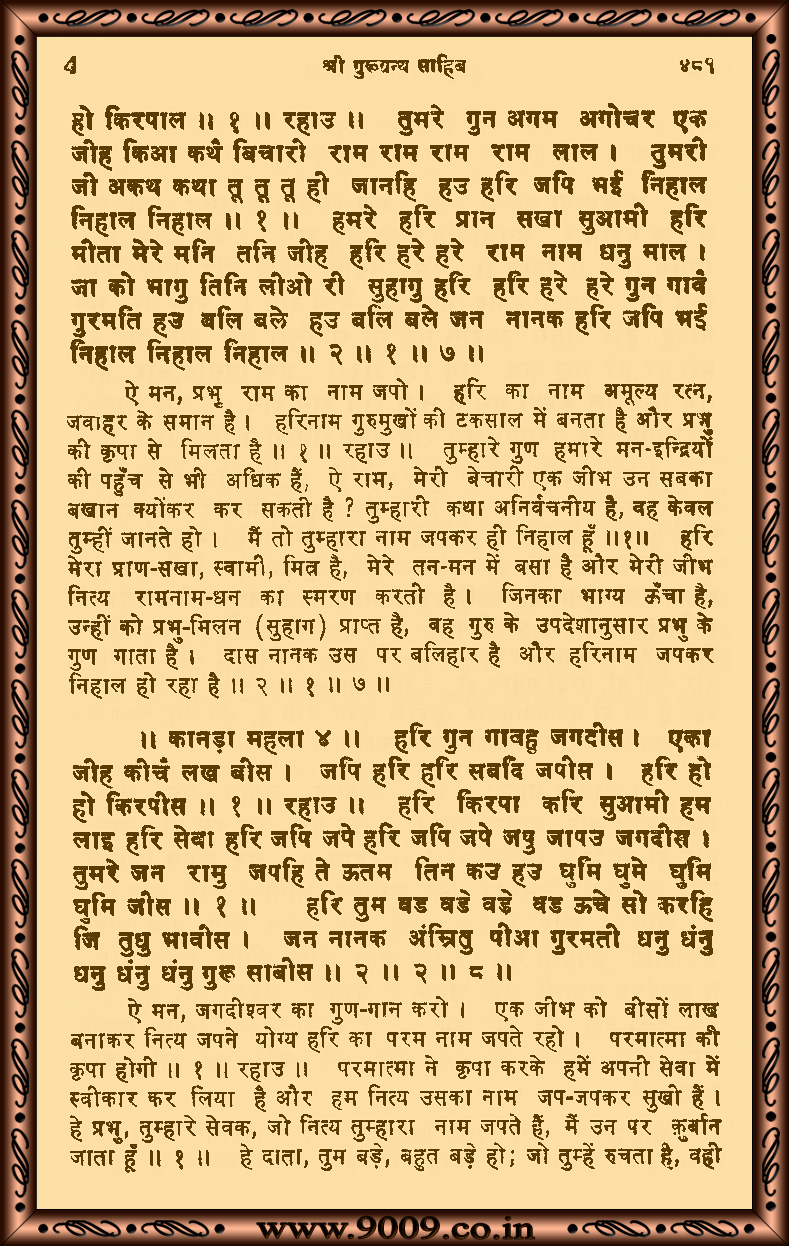 4 श्री गुरूग्रन्थ साहिब ४८१
हो किरपाल ॥ १ ॥ रहाउ ॥ तुमरे गुन अगम अगोचर एक
जीह किआ कथै बिचारी राम राम राम राम लाल । तुमरी
जी अकथ कथा तू तू तू ही जानहि हउ हरि जपि भई निहाल
निहाल निहाल ॥ १ ॥ हमरे हरि प्रान सखा सुआमी हरि
मीता मेरे मनि तनि जीह हरि हरे हरे राम नाम धनु माल ।
जा को भागु तिनि लीओ री सुहागु हरि हरि हरे हरे गुन गावै
गुरमति हउ बलि बले हउ बलि बले जन नानक हरि जपि भई
निहाल निहाल निहाल ॥ २ ॥ १ ॥ ७ ॥
ऐ मन, प्रभु राम का नाम जपो । हरि का नाम अमूल्य रत्न,
जवाहर के समान है । हरिनाम गुरुमुखों की टकसाल में बनता है और प्रभु
की कृपा से मिलता है ॥ १ ॥ रहाउ ॥ तुम्हारे गुण हमारे मन-इन्द्रियों
की पहुँच से भी अधिक हैं, ऐ राम, मेरी बेचारी एक जीभ उन सबका
बखान क्योंकर कर सकती है ? तुम्हारी कथा अनिर्वचनीय है, वह केवल
तुम्हीं जानते हो । मैं तो तुम्हारा नाम जपकर ही निहाल हूँ ॥१॥ हरि
मेरा प्राण-सखा, स्वामी, मित्र है, मेरे तन-मन में बसा है और मेरी जीभ
नित्य रामनाम-धन का स्मरण करती है । जिनका भाग्य ऊँचा है,
उन्हीं को प्रभु-मिलन (सुहाग) प्राप्त है, वह गुरु के उपदेशानुसार प्रभु के
गुण गाता है । दास नानक उस पर बलिहार है और हरिनाम जपकर
निहाल हो रहा है ॥ २ ॥ १ ॥ ७ ॥
॥ कानड़ा महला ४ ॥ हरि गुन गावहु जगदीस । एका
जीह कीचै लख बीस । जपि हरि हरि सबदि जपीस । हरि हो
हो किरपीस ॥ १ ॥ रहाउ ॥ हरि किरपा करि सुआमी हम
लाइ हरि सेवा हरि जपि जपे हरि जपि जपे जपु जापउ जगदीस ।
तुमरे जन रामु जपहि ते ऊतम तिन कउ हउ घुमि घुमे घुमि
घुमि जीस ॥ १ ॥ हरि तुम वड वडे वडे वड ऊचे सो करहि
जि तुधु भावीस । जन नानक अंम्रितु पीआ गुरमती धनु धंनु
धनु धंनु धंनु गुरू साबीस ॥ २ ॥ २ ॥ ८ ॥
ऐ मन, जगदीश्वर का गुण-गान करो । एक जीभ को बीसों लाख
बनाकर नित्य जपने योग्य हरि का परम नाम जपते रहो । परमात्मा की
कृपा होगी ॥ १ ॥ रहाउ ॥ परमात्मा ने कृपा करके हमें अपनी सेवा में
स्वीकार कर लिया है और हम नित्य उसका नाम जप-जपकर सुखी हैं ।
हे प्रभु, तुम्हारे सेवक, जो नित्य तुम्हारा नाम जपते हैं, मैं उन पर क़ुर्बान
जाता हूँ ॥ १ ॥ हे दाता, तुम बड़े, बहुत बड़े हो; जो तुम्हें रुचता है, वही
www.9009.co.in